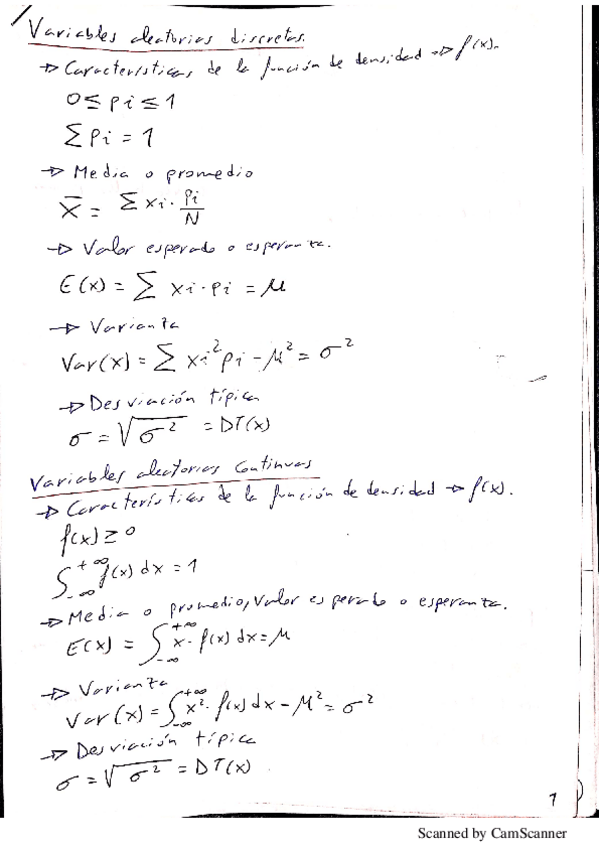 Variables aleatorias discretas.
→ Características de la función de densidad → f(x).
0 ≤ pi ≤ 1
Σ pi = 1
→ Media o promedio
x̄ = Σ xi · pi/N
→ Valor esperado o esperanza.
E(x) = Σ xi · pi = μ
→ Varianza
Var(x) = Σ xi² pi - μ² = σ²
→ Desviación típica
σ = √σ² = DT(x)
Variables aleatorias continuas
→ Características de la función de densidad → f(x).
f(x) ≥ 0
∫_{-∞}^{+∞} f(x) dx = 1
→ Media o promedio, valor esperado o esperanza.
E(x) = ∫_{-∞}^{+∞} x · f(x) dx = μ
→ Varianza
Var(x) = ∫_{-∞}^{+∞} x² · f(x) dx - μ² = σ²
→ Desviación típica
σ = √σ² = DT(x)
1
Scanned by CamScanner